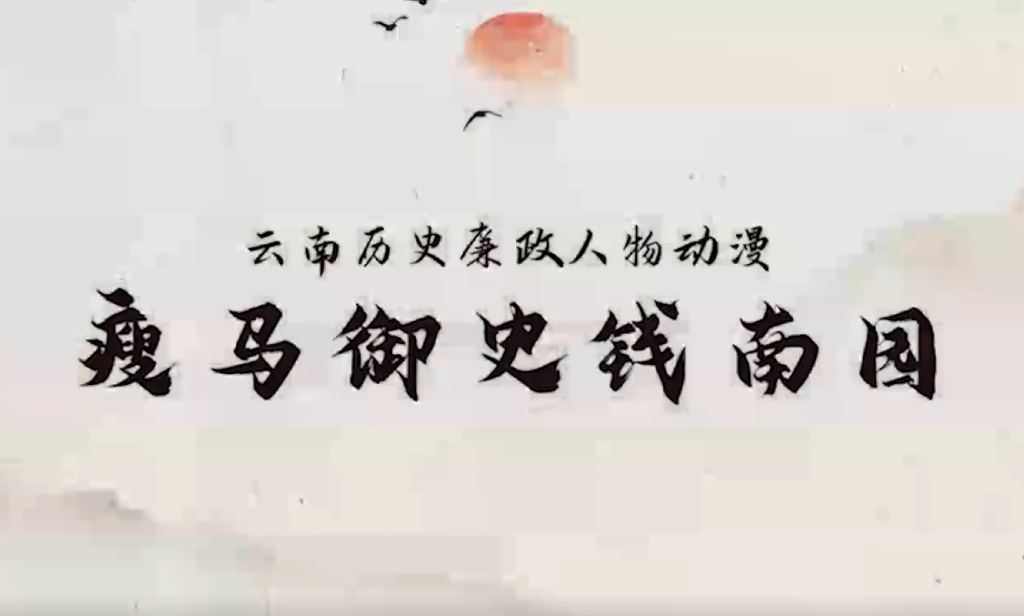 云南历史廉政人物动漫
瘦马御史钱南园